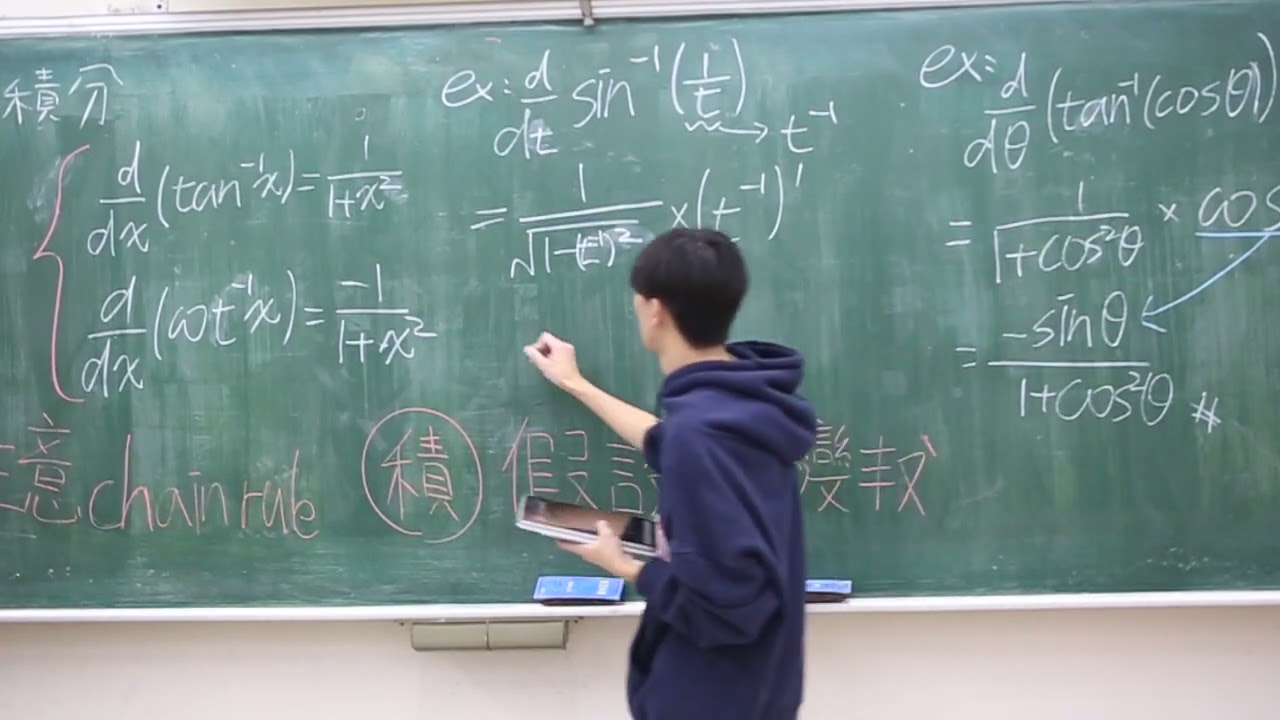 積分
d/dx (tan⁻¹x) = 1/(1+x²)
d/dx (cot⁻¹x) = -1/(1+x²)
ex: d/dt sin⁻¹(1/t) → t⁻¹
= 1/√(1-(t⁻¹)²) × (t⁻¹)'
ex: d/dθ (tan⁻¹(cosθ))
= 1/(1+cos²θ) × cos
= -sinθ/(1+cos²θ) #
意 chain rule 積 假設 變数